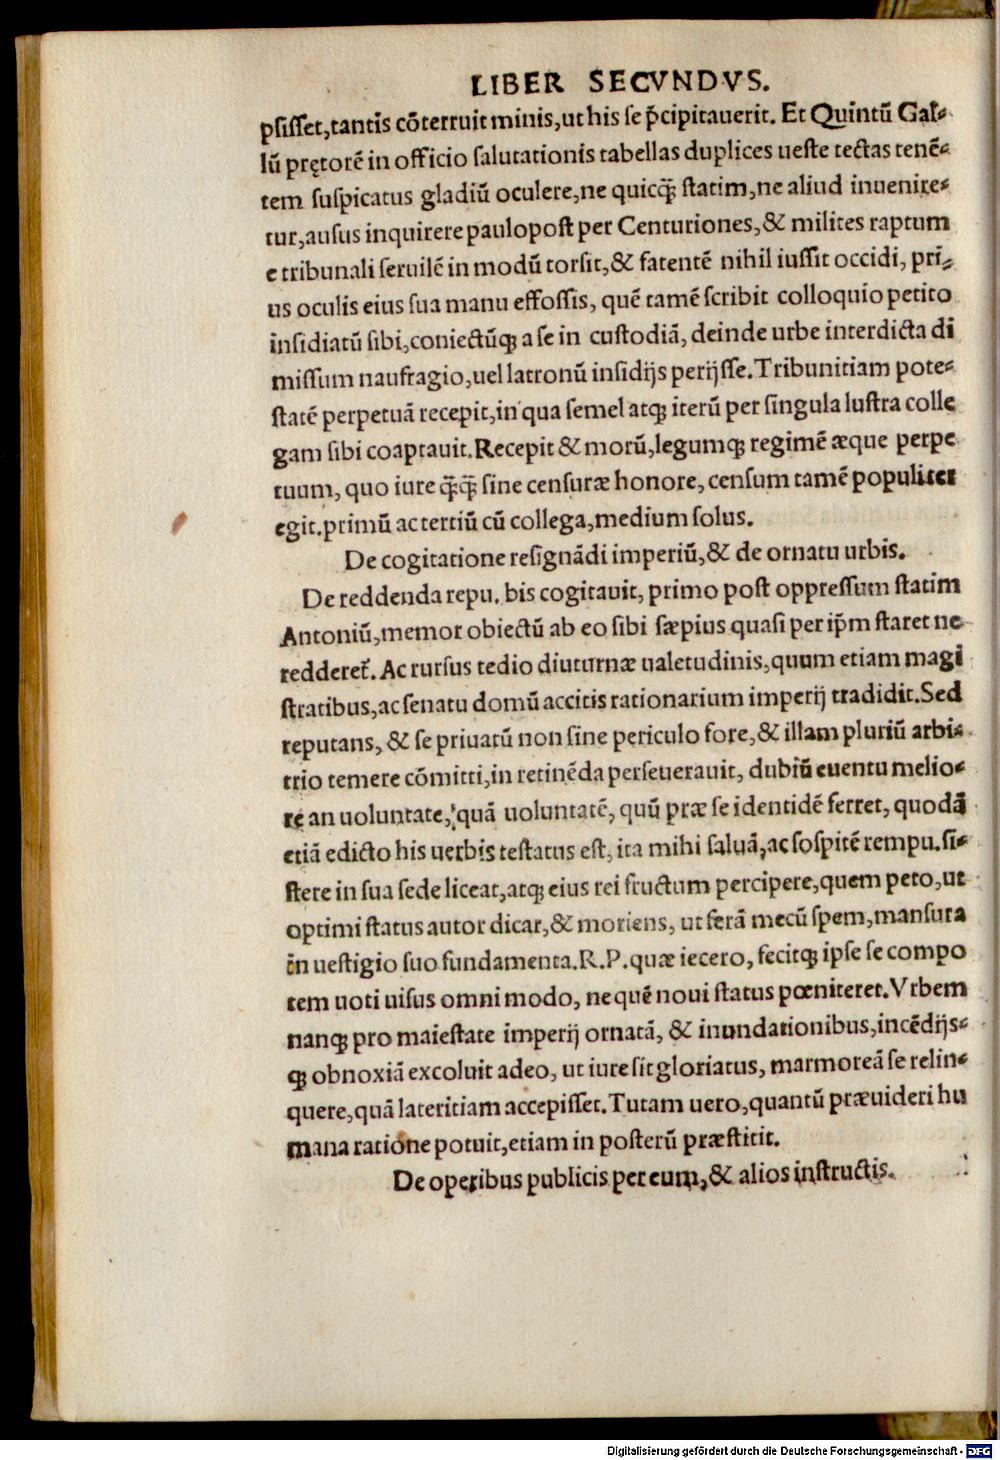 LIBER SECVNDVS.
psisset,tantis cõterruit minis,ut his se p̄cipitauerit. Et Quintũ Gal⸗
lũ prętorẽ in officio salutationis tabellas duplices ueste tectas tenẽ⸗
tem suspicatus gladiũ oculere,ne quicq̃ statim,ne aliud inuenire⸗
tur,ausus inquirere paulopost per Centuriones,& milites raptum
e tribunali seruilẽ in modũ torsit,& fatentẽ nihil iussit occidi, pri⸗
us oculis eius sua manu effossis, quẽ tamẽ scribit colloquio petito
insidiatũ sibi,coniectũq; a se in custodiã, deinde urbe interdicta di
missum naufragio,uel latronũ insidijs perijsse.Tribunitiam pote⸗
statẽ perpetuã recepit,in qua semel atq; iterũ per singula lustra colle
gam sibi coaptauit.Recepit & morũ,legumq; regimẽ æque perpe
tuum, quo iure q̃q̃ sine censuræ honore, censum tamẽ populi ter
egit.primũ ac tertiũ cũ collega,medium solus.
De cogitatione resignãdi imperiũ,& de ornatu urbis.
De reddenda repu. bis cogitauit, primo post oppressum statim
Antoniũ,memor obiectũ ab eo sibi sæpius quasi per ip̃m staret ne
redderet̃. Ac rursus tedio diuturnæ ualetudinis,quum etiam magi
stratibus,ac senatu domũ accitis rationarium imperij tradidit.Sed
reputans, & se priuatũ non sine periculo fore,& illam pluriũ arbi⸗
trio temere cõmitti,in retinẽda perseuerauit, dubiũ euentu melio⸗
re an uoluntate, quã uoluntatẽ, quũ præ se identidẽ ferret, quodã
etiã edicto his uerbis testatus est, ita mihi saluã,ac sospitẽ rempu.si⸗
stere in sua sede liceat,atq; eius rei fructum percipere,quem peto,ut
optimi status autor dicar,& moriens, ut ferã mecũ spem,mansura
in uestigio suo fundamenta.R.P.quæ iecero, fecitq; ipse se compo
tem uoti uisus omni modo, ne quẽ noui status pœniteret.Vrbem
nanq; pro maiestate imperij ornatã, & inundationibus,incẽdijs⸗
q; obnoxiã excoluit adeo, ut iure sit gloriatus, marmoreã se relin⸗
quere,quã lateritiam accepisset.Tutam uero,quantũ præuideri hu
mana ratione potuit,etiam in posterũ præstitit.
De operibus publicis per eum,& alios instructis.
Digitalisierung gefördert durch die Deutsche Forschungsgemeinschaft - DFG